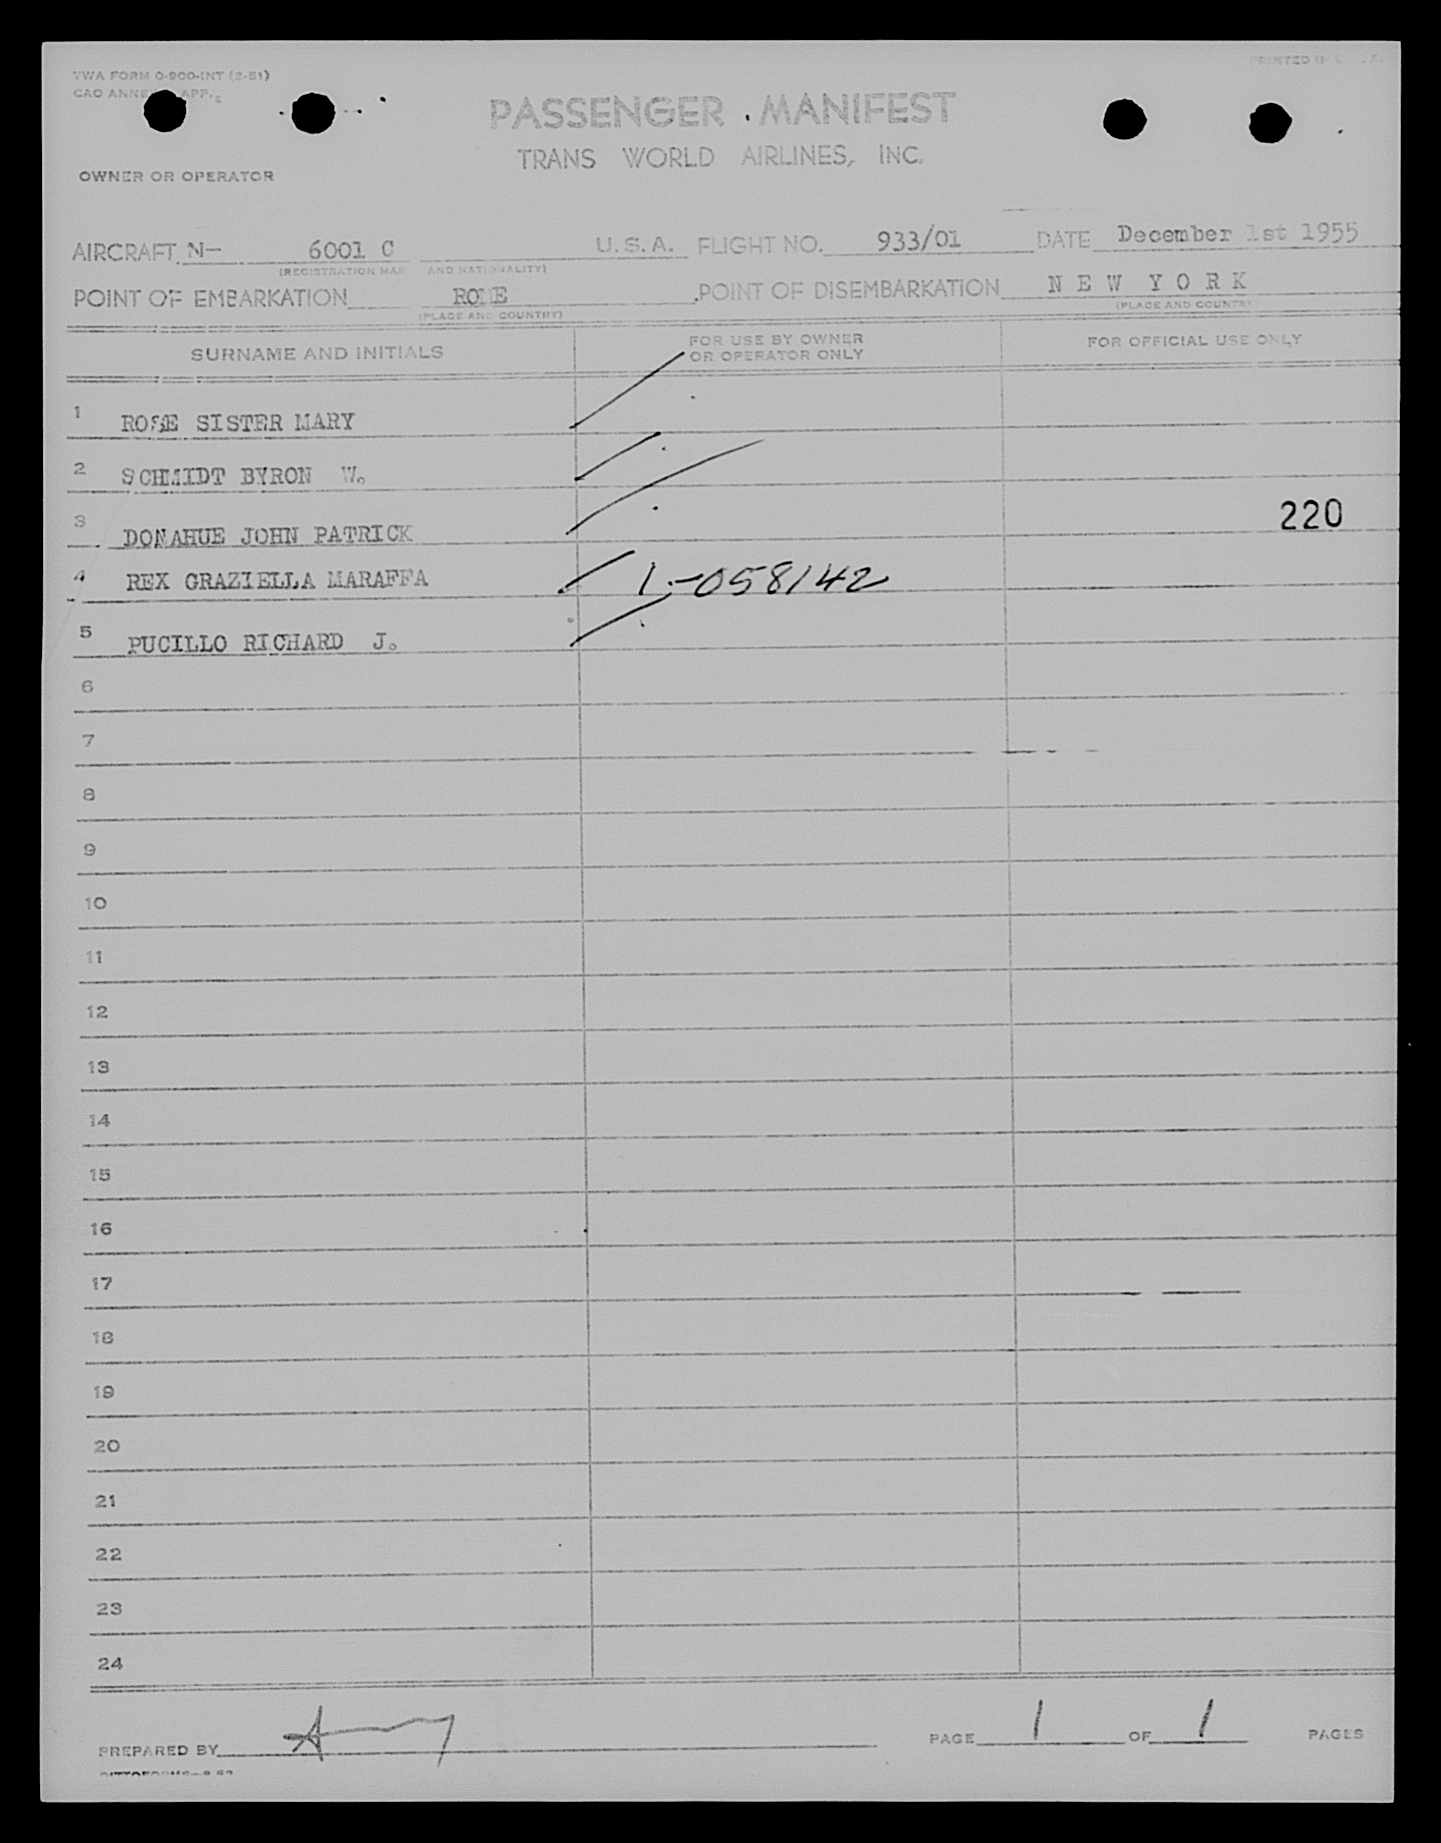 TWA FORM 0-900-INT (2-51)
PASSENGER MANIFEST
TRANS WORLD AIRLINES, INC.
OWNER OR OPERATOR
AIRCRAFT N- 6001 C U.S.A. FLIGHT NO. 933/01 DATE December 1st 1955
(REGISTRATION MARK AND NATIONALITY)
POINT OF EMBARKATION ROME POINT OF DISEMBARKATION N E W Y O R K
(PLACE AND COUNTRY) (PLACE AND COUNTRY)
SURNAME AND INITIALS FOR USE BY OWNER OR OPERATOR ONLY FOR OFFICIAL USE ONLY
1 ROSE SISTER MARY
2 SCHMIDT BYRON W.
220
3 DONAHUE JOHN PATRICK
4 REX GRAZIELLA MARAFFA 1-058142
5 PUCILLO RICHARD J.
6
7
8
9
10
11
12
13
14
15
16
17
18
19
20
21
22
23
24
PREPARED BY PAGE 1 OF 1 PAGES